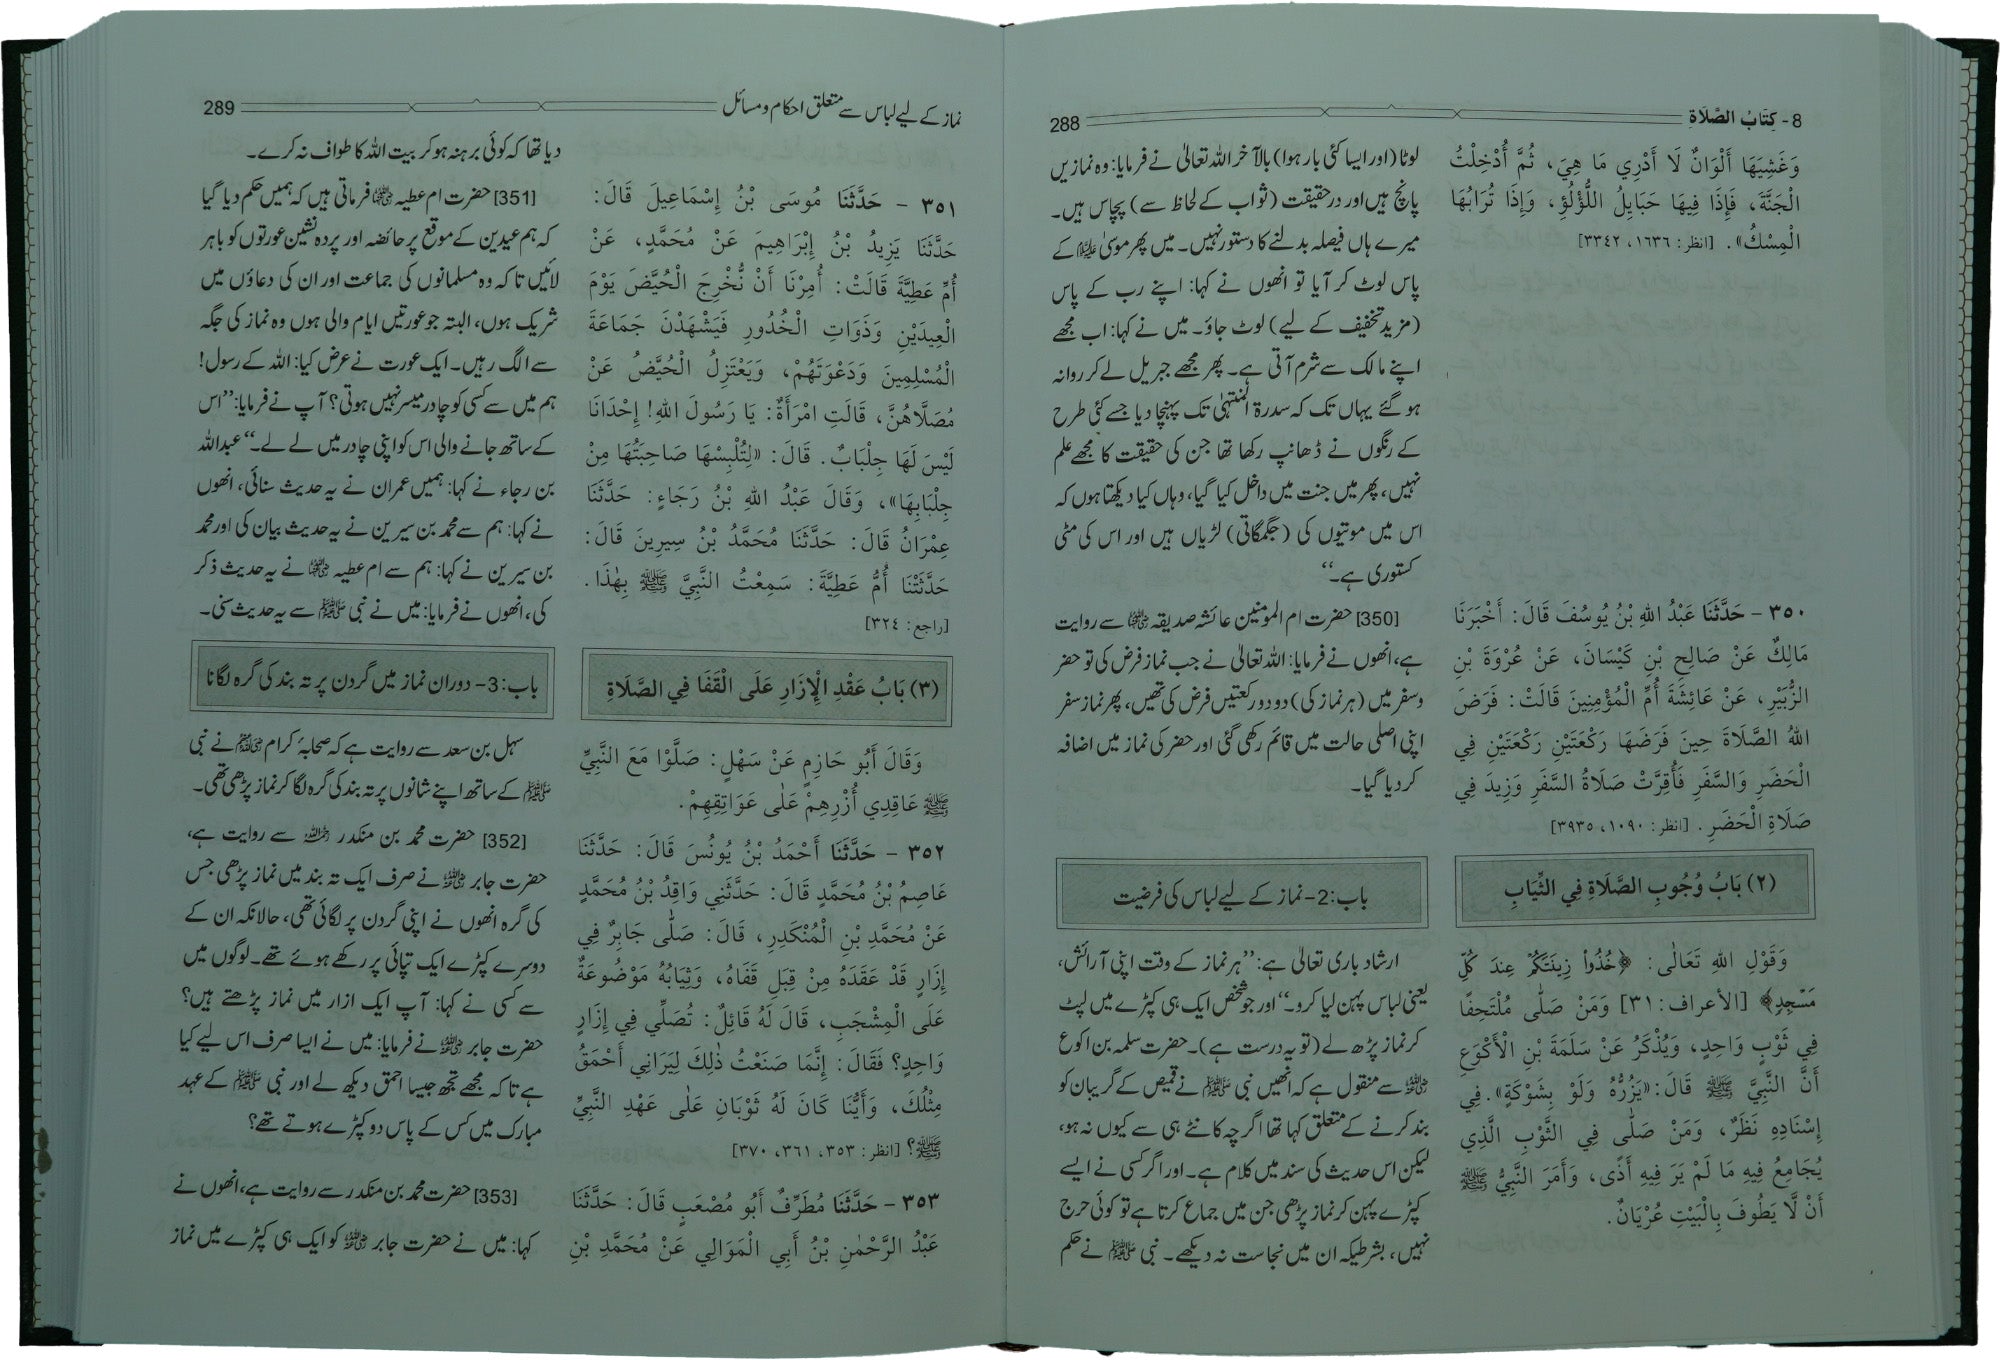 8- كِتَابُ الصَّلَاةِ
288
وَغَشِيَهَا أَلْوَانٌ لَا أَدْرِي مَا هِيَ، ثُمَّ أُدْخِلْتُ
الْجَنَّةَ، فَإِذَا فِيهَا حَبَايِلُ اللُّؤْلُؤِ، وَإِذَا تُرَابُهَا
الْمِسْكُ». [انظر: ١٦٣٦، ٣٣٤٢]
٣٥٠ - حَدَّثَنَا عَبْدُ اللهِ بْنُ يُوسُفَ قَالَ: أَخْبَرَنَا
مَالِكٌ عَنْ صَالِحِ بْنِ كَيْسَانَ، عَنْ عُرْوَةَ بْنِ
الزُّبَيْرِ، عَنْ عَائِشَةَ أُمِّ الْمُؤْمِنِينَ قَالَتْ: فَرَضَ
اللهُ الصَّلَاةَ حِينَ فَرَضَهَا رَكْعَتَيْنِ رَكْعَتَيْنِ فِي
الْحَضَرِ وَالسَّفَرِ فَأُقِرَّتْ صَلَاةُ السَّفَرِ وَزِيدَ فِي
صَلَاةِ الْحَضَرِ. [انظر: ١٠٩٠، ٣٩٣٥]
(٢) بَابُ وُجُوبِ الصَّلَاةِ فِي الثِّيَابِ
وَقَوْلِ اللهِ تَعَالَى: ﴿خُذُوا۟ زِينَتَكُمْ عِندَ كُلِّ
مَسْجِدٍ﴾ [الأعراف: ٣١] وَمَنْ صَلَّى مُلْتَحِفًا
فِي ثَوْبٍ وَاحِدٍ، وَيُذْكَرُ عَنْ سَلَمَةَ بْنِ الْأَكْوَعِ
أَنَّ النَّبِيَّ ﷺ قَالَ: «يَزُرُّهُ وَلَوْ بِشَوْكَةٍ». فِي
إِسْنَادِهِ نَظَرٌ، وَمَنْ صَلَّى فِي الثَّوْبِ الَّذِي
يُجَامِعُ فِيهِ مَا لَمْ يَرَ فِيهِ أَذًى، وَأَمَرَ النَّبِيُّ ﷺ
أَنْ لَّا يَطُوفَ بِالْبَيْتِ عُرْيَانٌ.
لوٹا (اور ایسا کئی بار ہوا) بالآخر اللہ تعالیٰ نے فرمایا: وہ نمازیں
پانچ ہیں اور درحقیقت (ثواب کے لحاظ سے) پچاس ہیں۔
میرے ہاں فیصلہ بدلنے کا دستور نہیں۔ میں پھر موسیٰ علیہ السلام کے
پاس لوٹ کر آیا تو انھوں نے کہا: اپنے رب کے پاس
(مزید تخفیف کے لیے) لوٹ جاؤ۔ میں نے کہا: اب مجھے
اپنے مالک سے شرم آتی ہے۔ پھر مجھے جبریل لے کر روانہ
ہو گئے یہاں تک کہ سدرۃ المنتہیٰ تک پہنچا دیا جسے کئی طرح
کے رنگوں نے ڈھانپ رکھا تھا جن کی حقیقت کا مجھے علم
نہیں، پھر میں جنت میں داخل کیا گیا، وہاں کیا دیکھتا ہوں کہ
اس میں موتیوں کی (جگمگاتی) لڑیاں ہیں اور اس کی مٹی
کستوری ہے۔‘‘
[350] حضرت ام المومنین عائشہ صدیقہ رضی اللہ عنہا سے روایت
ہے، انھوں نے فرمایا: اللہ تعالیٰ نے جب نماز فرض کی تو حضر
وسفر میں (ہر نماز کی) دو دو رکعتیں فرض کی تھیں، پھر نماز سفر
اپنی اصلی حالت میں قائم رکھی گئی اور حضر کی نماز میں اضافہ
کر دیا گیا۔
باب:2- نماز کے لیے لباس کی فرضیت
ارشاد باری تعالیٰ ہے: ’’ہر نماز کے وقت اپنی آرائش،
یعنی لباس پہن لیا کرو۔‘‘ اور جو شخص ایک ہی کپڑے میں لپٹ
کر نماز پڑھ لے (تو یہ درست ہے)۔ حضرت سلمہ بن اکوع
رضی اللہ عنہ سے منقول ہے کہ انھیں نبی ﷺ نے قمیص کے گریبان کو
بند کرنے کے متعلق کہا تھا اگرچہ کانٹے ہی سے کیوں نہ ہو،
لیکن اس حدیث کی سند میں کلام ہے۔ اور اگر کسی نے ایسے
کپڑے پہن کر نماز پڑھی جن میں جماع کرتا ہے تو کوئی حرج
نہیں، بشرطیکہ ان میں نجاست نہ دیکھے۔ نبی ﷺ نے حکم
نماز کے لیے لباس سے متعلق احکام و مسائل
289
٣٥١ - حَدَّثَنَا مُوسَى بْنُ إِسْمَاعِيلَ قَالَ:
حَدَّثَنَا يَزِيدُ بْنُ إِبْرَاهِيمَ عَنْ مُحَمَّدٍ، عَنْ
أُمِّ عَطِيَّةَ قَالَتْ: أُمِرْنَا أَنْ نُّخْرِجَ الْحُيَّضَ يَوْمَ
الْعِيدَيْنِ وَذَوَاتِ الْخُدُورِ فَيَشْهَدْنَ جَمَاعَةَ
الْمُسْلِمِينَ وَدَعْوَتَهُمْ، وَيَعْتَزِلُ الْحُيَّضُ عَنْ
مُصَلَّاهُنَّ، قَالَتِ امْرَأَةٌ: يَا رَسُولَ اللهِ! إِحْدَانَا
لَيْسَ لَهَا جِلْبَابٌ. قَالَ: «لِتُلْبِسْهَا صَاحِبَتُهَا مِنْ
جِلْبَابِهَا»، وَقَالَ عَبْدُ اللهِ بْنُ رَجَاءٍ: حَدَّثَنَا
عِمْرَانُ قَالَ: حَدَّثَنَا مُحَمَّدُ بْنُ سِيرِينَ قَالَ:
حَدَّثَتْنَا أُمُّ عَطِيَّةَ: سَمِعْتُ النَّبِيَّ ﷺ بِهٰذَا.
[راجع: ٣٢٤]
(٣) بَابُ عَقْدِ الْإِزَارِ عَلَى الْقَفَا فِي الصَّلَاةِ
وَقَالَ أَبُو حَازِمٍ عَنْ سَهْلٍ: صَلَّوْا مَعَ النَّبِيِّ
ﷺ عَاقِدِي أُزْرِهِمْ عَلَى عَوَاتِقِهِمْ.
٣٥٢ - حَدَّثَنَا أَحْمَدُ بْنُ يُونُسَ قَالَ: حَدَّثَنَا
عَاصِمُ بْنُ مُحَمَّدٍ قَالَ: حَدَّثَنِي وَاقِدُ بْنُ مُحَمَّدٍ
عَنْ مُحَمَّدِ بْنِ الْمُنْكَدِرِ، قَالَ: صَلَّى جَابِرٌ فِي
إِزَارٍ قَدْ عَقَدَهُ مِنْ قِبَلِ قَفَاهُ، وَثِيَابُهُ مَوْضُوعَةٌ
عَلَى الْمِشْجَبِ، قَالَ لَهُ قَائِلٌ: تُصَلِّي فِي إِزَارٍ
وَاحِدٍ؟ فَقَالَ: إِنَّمَا صَنَعْتُ ذٰلِكَ لِيَرَانِي أَحْمَقُ
مِثْلُكَ، وَأَيُّنَا كَانَ لَهُ ثَوْبَانِ عَلَى عَهْدِ النَّبِيِّ
ﷺ؟ [انظر: ٣٥٣، ٣٦١، ٣٧٠]
٣٥٣ - حَدَّثَنَا مُطَرِّفٌ أَبُو مُصْعَبٍ قَالَ: حَدَّثَنَا
عَبْدُ الرَّحْمٰنِ بْنُ أَبِي الْمَوَالِي عَنْ مُحَمَّدِ بْنِ
دیا تھا کہ کوئی برہنہ ہو کر بیت اللہ کا طواف نہ کرے۔
[351] حضرت ام عطیہ رضی اللہ عنہا فرماتی ہیں کہ ہمیں حکم دیا گیا
کہ ہم عیدین کے موقع پر حائضہ اور پردہ نشین عورتوں کو باہر
لائیں تاکہ وہ مسلمانوں کی جماعت اور ان کی دعاؤں میں
شریک ہوں، البتہ جو عورتیں ایام والی ہوں وہ نماز کی جگہ
سے الگ رہیں۔ ایک عورت نے عرض کیا: اللہ کے رسول!
ہم میں سے کسی کو چادر میسر نہیں ہوتی؟ آپ نے فرمایا: ’’اس
کے ساتھ جانے والی اس کو اپنی چادر میں لے لے۔‘‘ عبداللہ
بن رجاء نے کہا: ہمیں عمران نے یہ حدیث سنائی، انھوں
نے کہا: ہم سے محمد بن سیرین نے یہ حدیث بیان کی اور محمد
بن سیرین نے کہا: ہم سے ام عطیہ رضی اللہ عنہا نے یہ حدیث ذکر
کی، انھوں نے فرمایا: میں نے نبی ﷺ سے یہ حدیث سنی۔
باب:3- دوران نماز میں گردن پر تہ بند کی گرہ لگانا
سہل بن سعد سے روایت ہے کہ صحابۂ کرام رضی اللہ عنہم نے نبی
ﷺ کے ساتھ اپنے شانوں پر تہ بند کی گرہ لگا کر نماز پڑھی تھی۔
[352] حضرت محمد بن منکدر رحمہ اللہ سے روایت ہے،
حضرت جابر رضی اللہ عنہ نے صرف ایک تہ بند میں نماز پڑھی جس
کی گرہ انھوں نے اپنی گردن پر لگائی تھی، حالانکہ ان کے
دوسرے کپڑے ایک تپائی پر رکھے ہوئے تھے۔ لوگوں میں
سے کسی نے کہا: آپ ایک ازار میں نماز پڑھتے ہیں؟
حضرت جابر رضی اللہ عنہ نے فرمایا: میں نے ایسا صرف اس لیے کیا
ہے تاکہ مجھے تجھ جیسا احمق دیکھ لے اور نبی ﷺ کے عہد
مبارک میں کس کے پاس دو کپڑے ہوتے تھے؟
[353] حضرت محمد بن منکدر سے روایت ہے، انھوں نے
کہا: میں نے حضرت جابر رضی اللہ عنہ کو ایک ہی کپڑے میں نماز